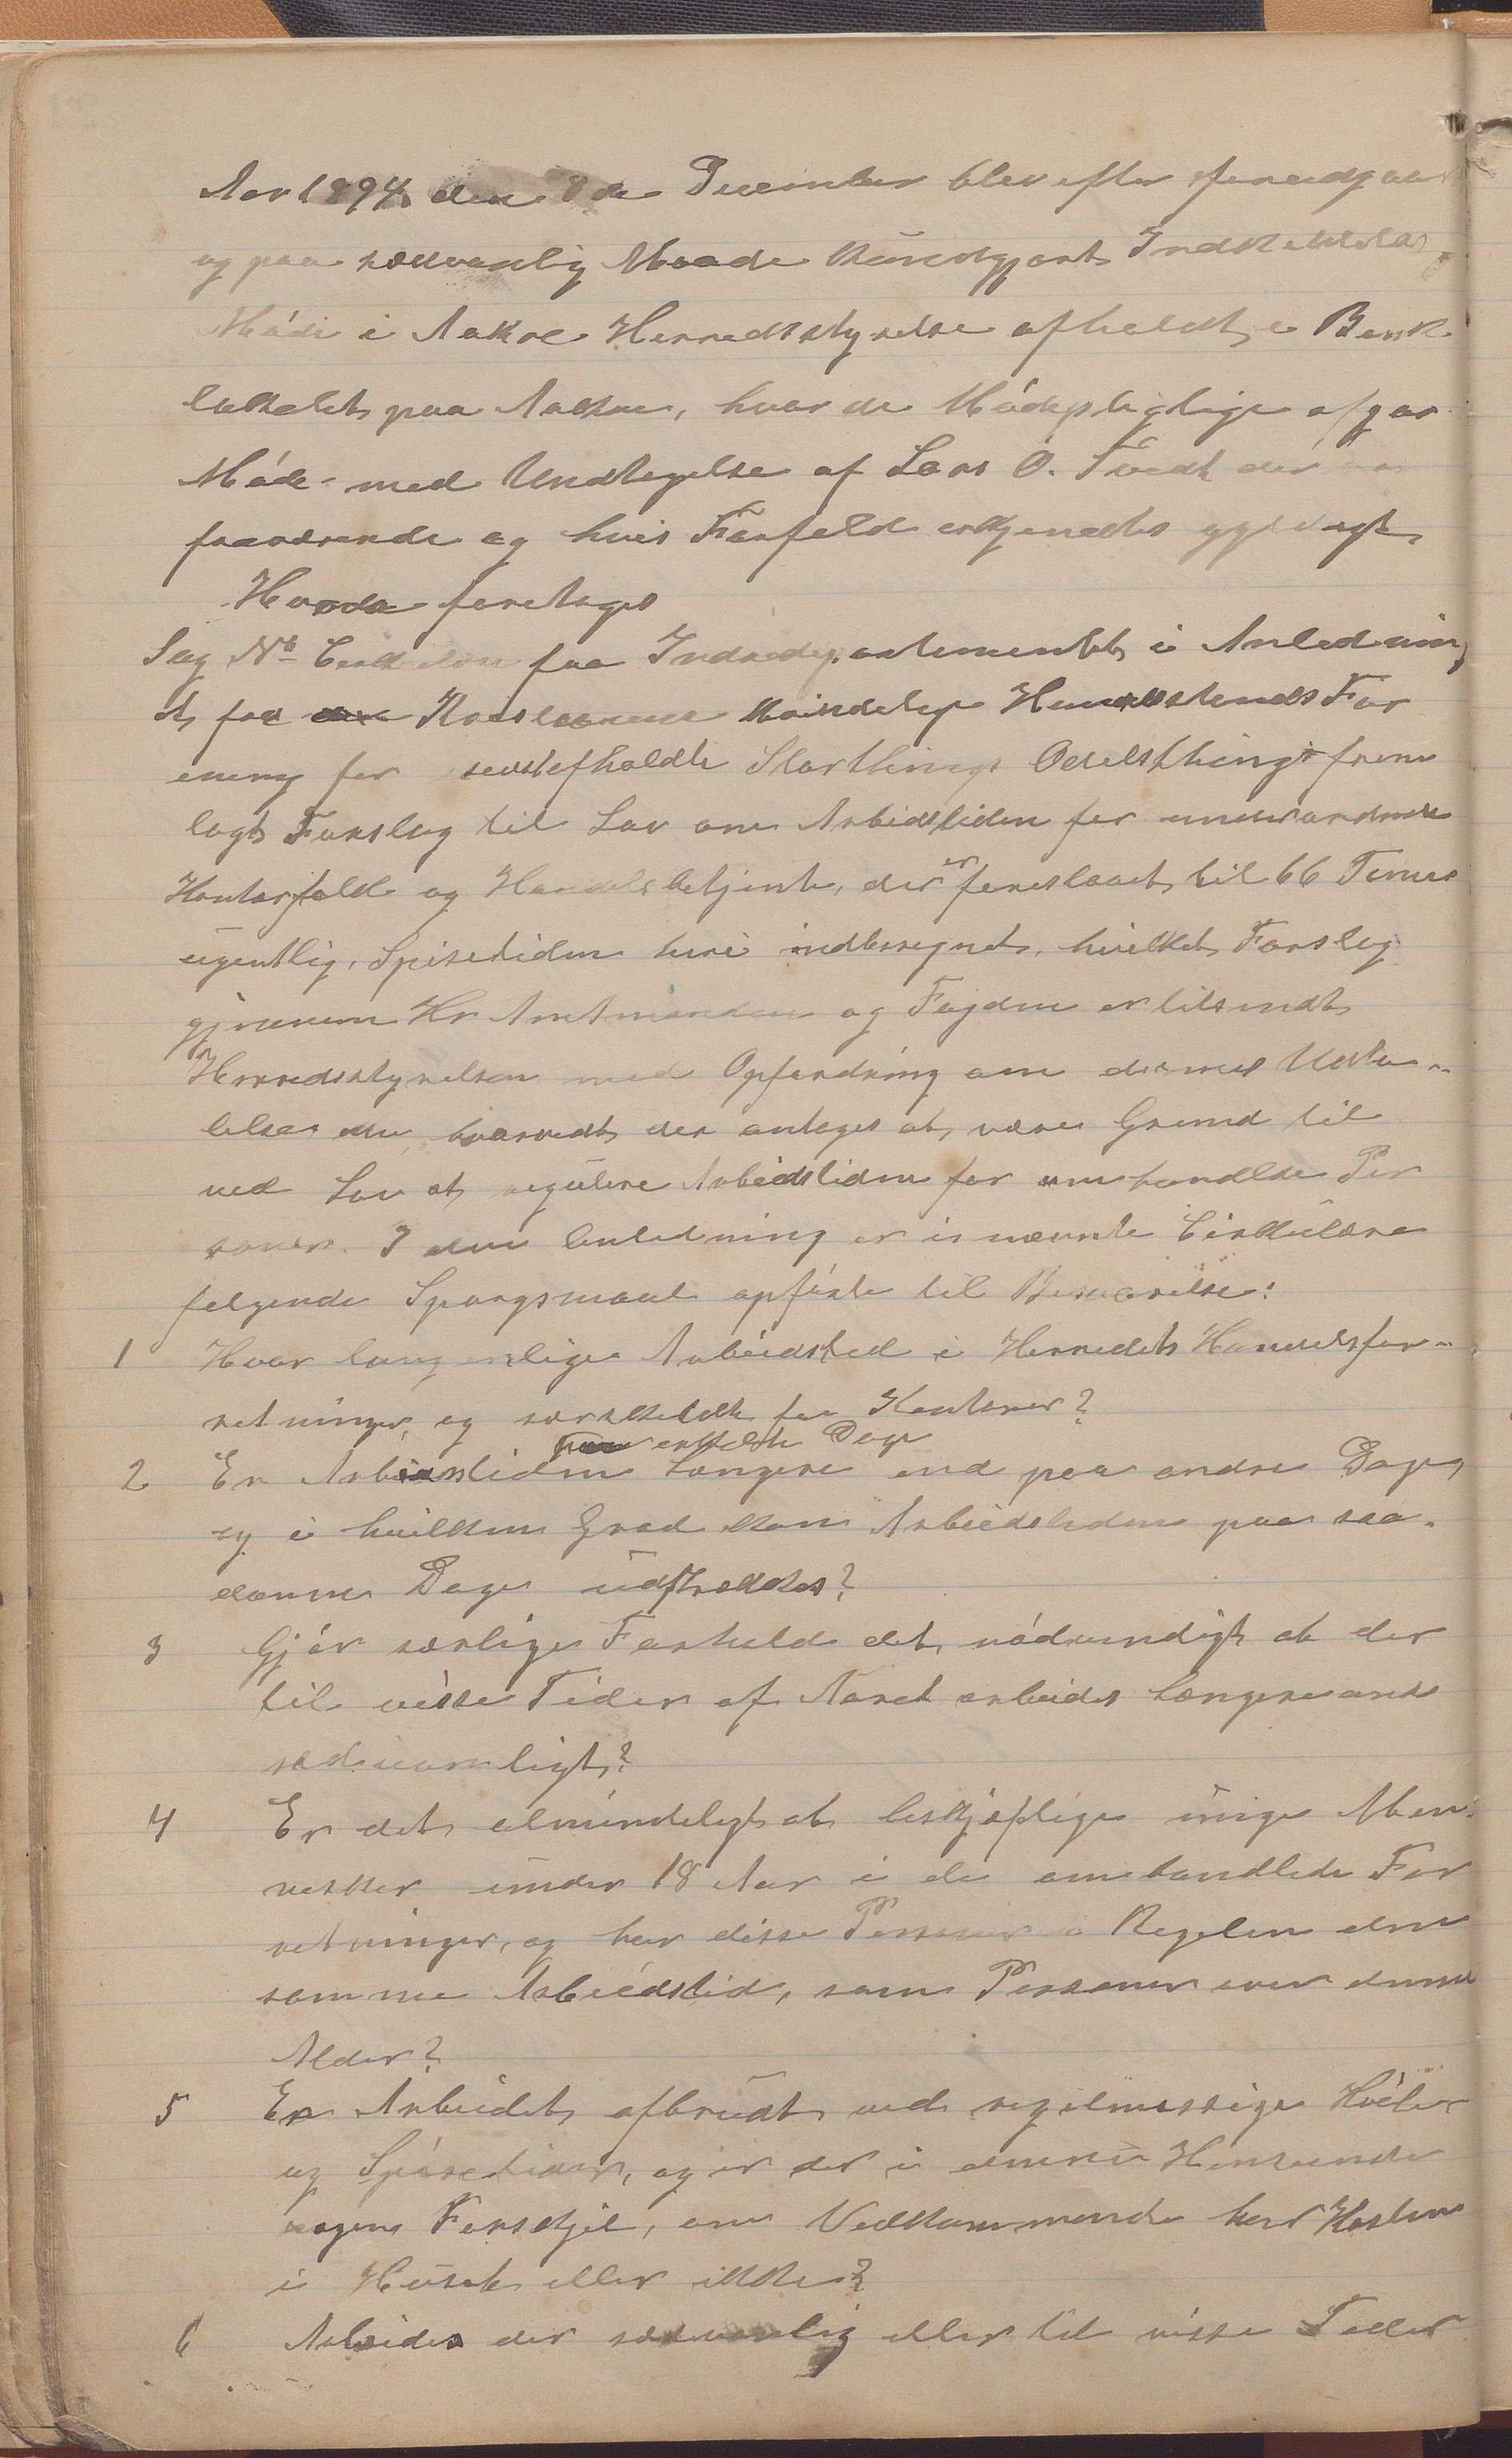 Aar 1894 den 8de December blev efter foreudgaaet
og paa sædvanlig Maade kundgjort Indkaldelse
Møde i Aakre Herredsstyrelse afholdt i Bank
lokalet paa Aakre, hvor de Mødepligtige afgav
Møde med Undtagelse af Lars O. Tvedt der var
fraværende og hvis Forfald erkjendtes gyldigt.
Hvorda foretoges
Sag No Cirkulære fra Indredepartementet i Anledning
et fra Kvindelige Handelsstands For
ening for sidstafholdte Storthings Odelsthing frem
lagt Forslag til Lov om Arbeidstiden for underordnede
Kontorfolk og Handelsbetjente, der er foreslaaet til 66 Timer
ugentlig, Spisetiden heri indberegnet, hvilket Forslag
gjennem Hr Amtmanden og Fogden er tilsendt
Herredsstyrelsen med Opfordring om dennes Udta-
lelse om, hvorvidt der antages at være Grund til
ved Lov at regulere Arbeidstiden for omhandlede Per
soner. I den Anledning er i nævnte Cirkulære
følgende Spørgsmaal opførte til Besvarelse:
1 Hvor lang er Arbeidstid i Herredets Handelsfor-
retninger, og særskildt for Kontorer?
paa enkelte Dage
2 Er Arbeidstiden længere end paa andre Dage,
og i hvilken Grad kan Arbeidstiden paa saa-
danne Dage udstrækkes?
3 Gjør særlige Forhold det nødvendigt at der
til visse Tider af Aaret arbeides længere end
sædvanligt?
4 Er det almindeligt at beskjæftige unge Men-
nesker under 18 Aar i de omhandlede For
retninger, og har disse Personer i Regelen den
samme Arbeidstid, som Personer over denne
Alder?
5 Er Arbeidet afbrudt ved regelmessige Hvile-
og Spisetider, og er der i denne Henseende
nogen Forskjel, om Vedkommende har Kosten
i Huset eller ikke?
6 Arbeides der sædvanlig eller til visse Tider